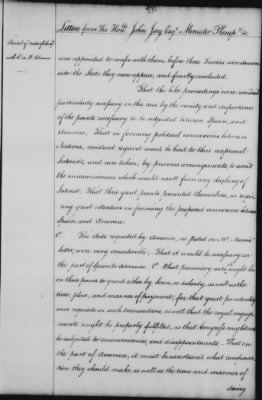 Letters from The Honble John Jay Esqr Minister Plenipo &c.
was appointed to confer with them, before those Treaties were drawn
into the State they now appear, and finally concluded.
That the like proceedings were rendered
particularly necessary in this case by the variety and importance
of the points necessary to be adjusted between Spain, and
America. That in forming political connexions between
Nations, constant regard must be had to their reciprocal
Interests, and care taken, by previous arrangements, to avoid
the inconveniences which would result from any clashing of
Interest. That three great points presented themselves, as requi-
ring great attention in forming the proposed connexion between
Spain, and America.
The Aids requested by America, as stated in Mr
letter, were very considerable. That it would be necessary on
the part of Spain to determine What pecuniary aids might be
in their power to grant either by loan, or subsidy, as well as the
time, place, and manner of payment; for that great punctuality
was requisite in such transactions, as well that the royal engage-
ments might be properly fulfilled, as that Congress might not
be subjected to inconveniences, and disappointments. That on
the part of America, it must be ascertained what compensa-
tion they should make, as well as the time and manner of
doing